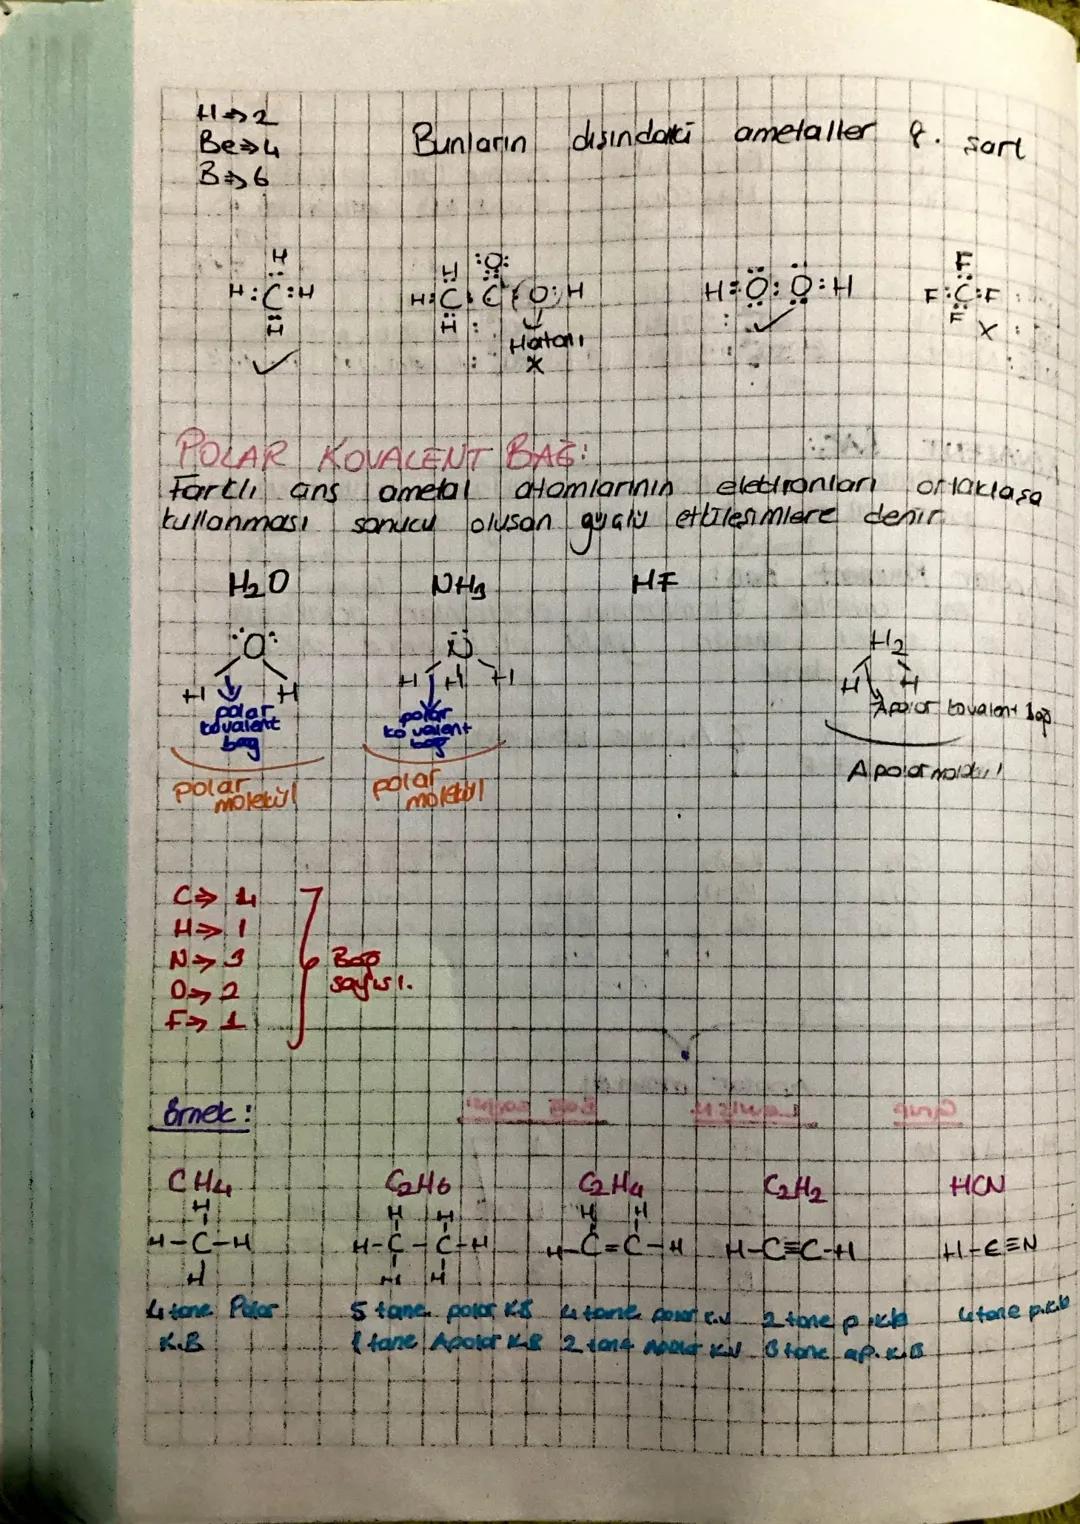 H⇒2
Be⇒4
B⇒6
Bunların dışındaki ametaller 8. şart
H
H:C:H
H
H :O:
H:C:C:O:H
H
Hatalı
X
H:O:O:H
F
F:C:F
F
X
POLAR KOVALENT BAĞ:
Farklı cins ametal atomlarının elektronları ortaklaşa
kullanması sonucu oluşan güçlü etkileşimlere denir
H₂O NH₃ HF
O
H H
polar
kovalent
bağ
polar
molekül
N
H H H
polar
kovalent
bağ
polar
molekül
H₂
H H
Apolar kovalent bağ
Apolar molekül
C⇒ 4
H⇒ 1
N⇒ 3
O⇒ 2
F⇒ 1
Bağ
sayısı.
Örnek:
CH₄ C₂H₆ C₂H₄ C₂H₂ HCN
H H H H H
H-C-H H-C-C-H H-C=C-H H-C≡C-H H-C≡N
H H H
4 tane Polar 5 tane polar K.B 4 tane polar 2 tane p.k.b 4 tane p.k.b
K.B 1 tane Apolar K.B 2 tane Apolar 3 tane ap. K.B